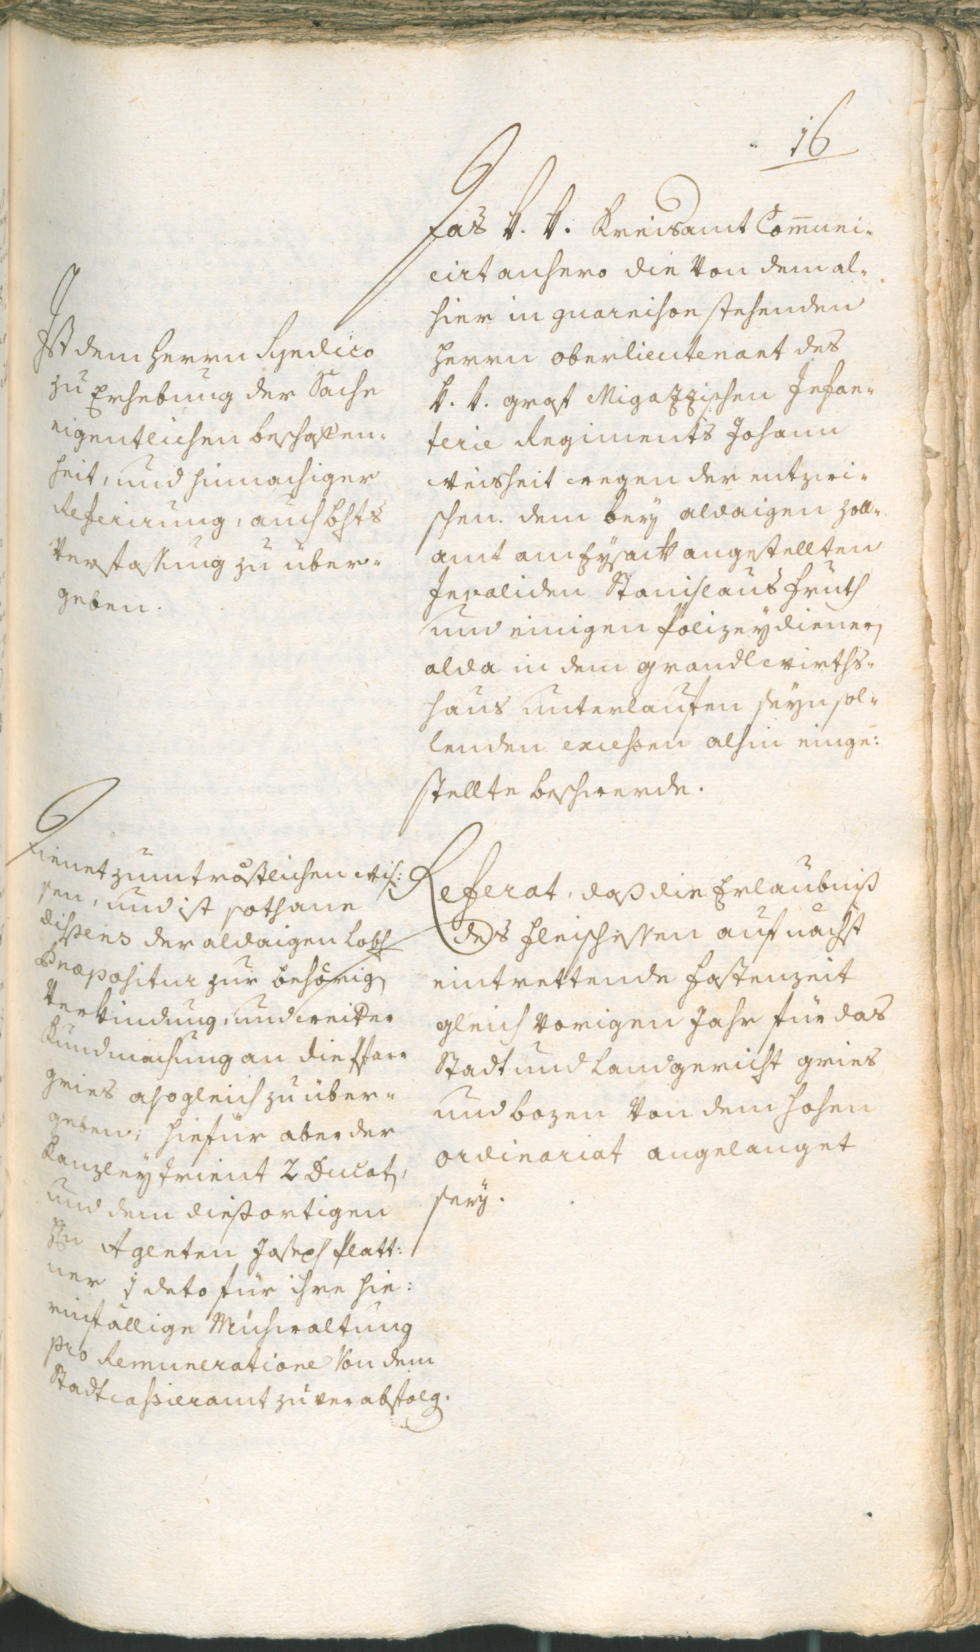 16
Das k. k. Kreisamt Com̄uni-
cirt anhero die von dem al-
hier in guarnison stehenden
Herrn oberlieutenant des
k. k. graf Migazzischen Infan-
terie Regiments Johann
Weisheit wegen der entzwi-
schen dem bey aldaigen Zoll-
amt am Eysack angestellten
Invaliden Stanislaus Fruth
und einigen Polizeydienern
alda in dem grandlwirths-
haus unterlauffen seyn sol-
lenden excessen alhin einge-
stellte beschwerde.
Ist dem Herrn Syndico
zu Erhebung der Sache
eigentlichen beschaffen-
heit, und hinnachiger
Referirung, auch bhts
Verfassung zu über-
geben.
Referat, daß die Erlaubniß
des fleischessen auf nächst
eintrettende fastenzeit
gleich vorigen Jahr für das
Stadt und Landgericht gries
und bozen von dem hohen
ordinariat angelanget
sey.
Dienet zum tröstlichen wis-
sen, und ist sothane
dispens der aldaigen Lobl
Præpositur zur behörig
Verkündung, und weiter
Kundmachung an die Pfarr
gries alsogleich zu über-
geben; hiefür aber der
Kanzley trient 2 Ducat,
und dem dießortigen
Hn Agenten Joseph Platt-
ner 1 deto für ihre hie-
einfällige Mühwaltung
pro Remuneratione von dem
Stadtcassieramt zu verabfolg.